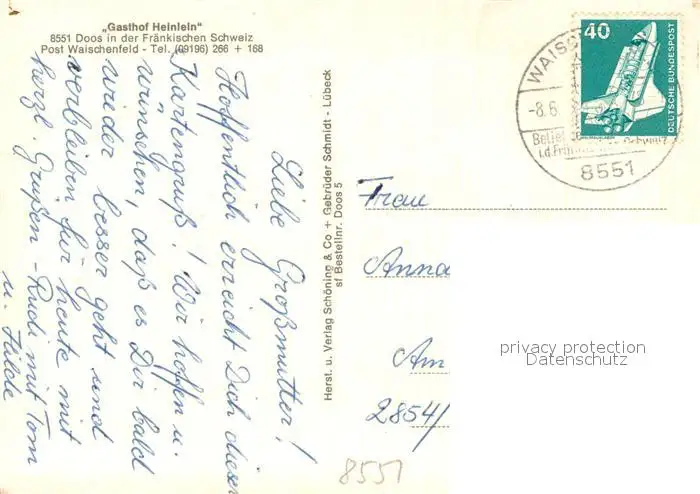 „Gasthof Heinlein“
8551 Doos in der Fränkischen Schweiz
Post Waischenfeld - Tel. (09196) 266 + 168
Liebe Großmutter!
Hoffentlich erreicht Dich dieser
Kartengruß! Wir hoffen u.
wünschen, daß es Dir bald
wieder besser geht und
verbleiben für heute mit
herzl. Grüßen - Rudi mit Tom
u. Hilde
Herst. u. Verlag Schöning & Co + Gebrüder Schmidt - Lübeck
sf Bestellnr. Doos 5
40
DEUTSCHE BUNDESPOST
WAISC
-8.6.
8551
Frau
Anna
Am
2854/
privacy protection
Datenschutz
8551